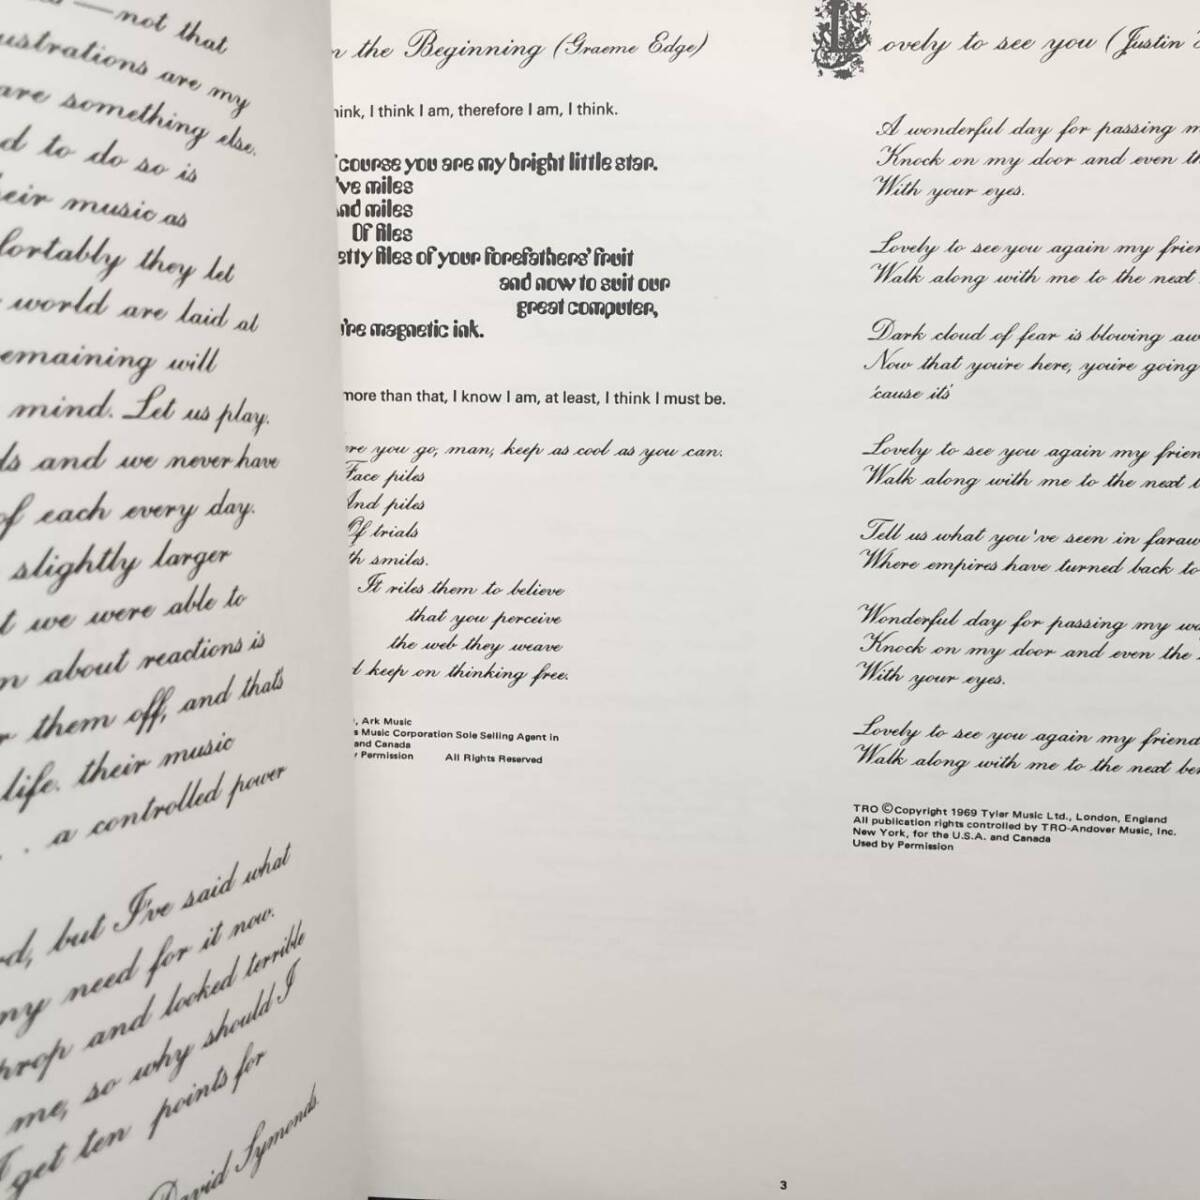 not that
are my
are something else.
d to do so is
their music as
they let
world are laid at
remaining will
mind. Let us play.
and we never have
of each every day.
slightly larger
we were able to
about reactions is
them off, and that's
life. their music
. . a controlled power
but I've said what
my need for it now.
and looked terrible
me, so why should I
get ten points for
David Symonds.
the Beginning (Graeme Edge)
I think I am, therefore I am, I think.
course you are my bright little star.
've miles
And miles
Of files
files of your forefathers' fruit
and now to suit our
great computer,
magnetic ink.
more than that, I know I am, at least, I think I must be.
you go, man, keep as cool as you can.
Face piles
And piles
Of trials
smiles.
It riles them to believe
that you perceive
the web they weave
keep on thinking free.
, Ark Music
Music Corporation Sole Selling Agent in
and Canada
Permission All Rights Reserved
Lovely to see you (Justin
A wonderful day for passing
Knock on my door and even
With your eyes.
Lovely to see you again my
Walk along with me to the next
Dark cloud of fear is blowing
Now that you're here, you're going
'cause it's
Lovely to see you again my
Walk along with me to the next
Tell us what you've seen in
Where empires have turned back to
Wonderful day for passing my
Knock on my door and even the
With your eyes.
Lovely to see you again my friend
Walk along with me to the next
TRO ©Copyright 1969 Tyler Music Ltd., London, England
All publication rights controlled by TRO-Andover Music, Inc.
New York, for the U.S.A. and Canada
Used by Permission
3